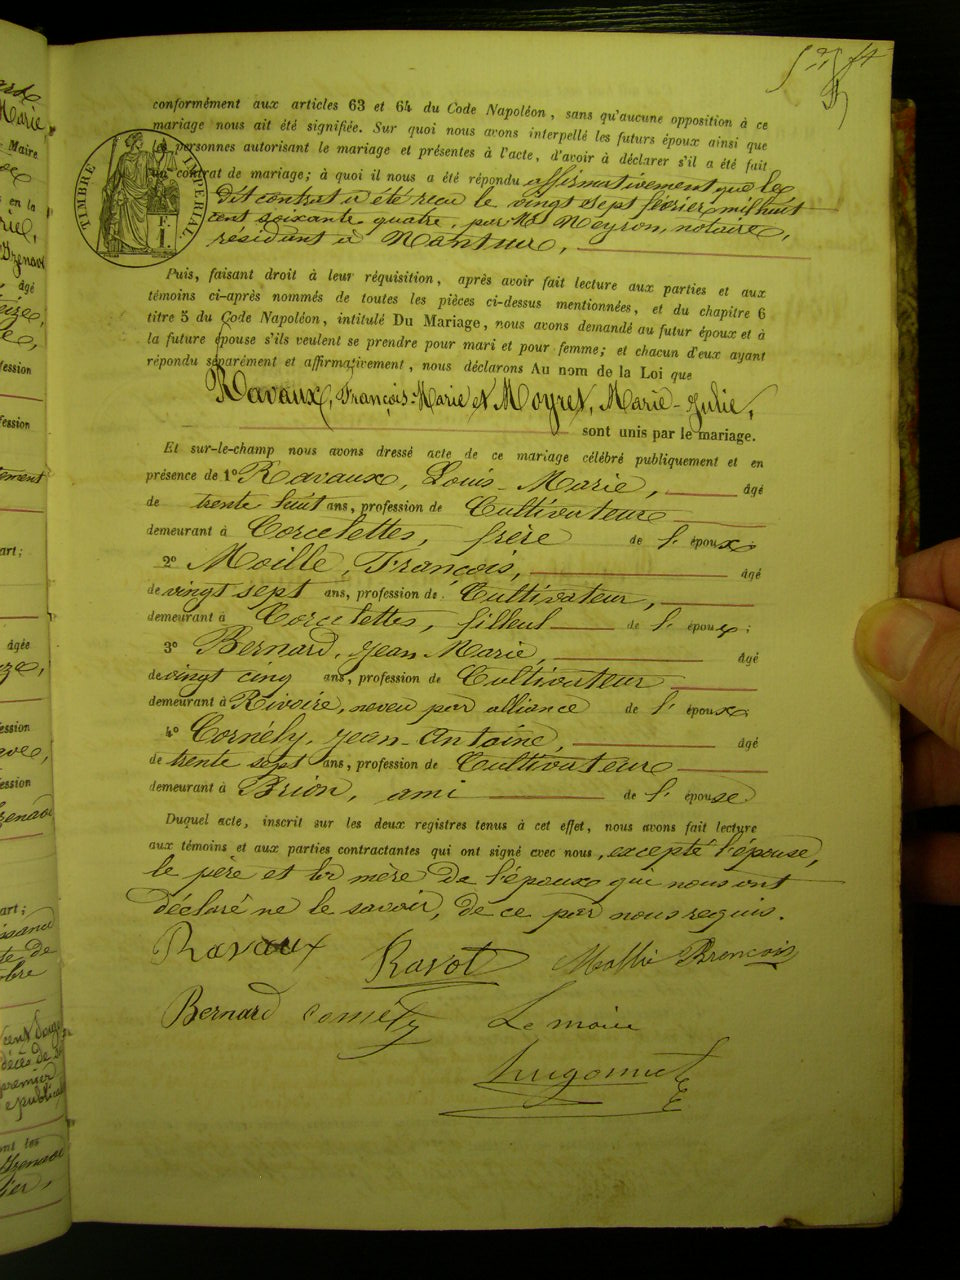 conformément aux articles 63 et 64 du Code Napoléon, sans qu'aucune opposition à ce
mariage nous ait été signifiée. Sur quoi nous avons interpellé les futurs époux ainsi que
personnes autorisant le mariage et présentes à l'acte, d'avoir à déclarer s'il a été fait
un contrat de mariage; à quoi il nous a été répondu affirmativement que le
dit contrat a été reçu le vingt sept février mil huit
cent soixante quatre, par Me Neyron, notaire,
résidant à Nantua,
TIMBRE IMPÉRIAL
Puis, faisant droit à leur réquisition, après avoir fait lecture aux parties et aux
témoins ci-après nommés de toutes les pièces ci-dessus mentionnées, et du chapitre 6
titre 5 du Code Napoléon, intitulé Du Mariage, nous avons demandé au futur époux et à
la future épouse s'ils veulent se prendre pour mari et pour femme; et chacun d'eux ayant
répondu séparément et affirmativement, nous déclarons Au nom de la Loi que
Ravaux, François-Marie et Moyret, Marie-Julie,
sont unis par le mariage.
Et sur-le-champ nous avons dressé acte de ce mariage célébré publiquement et en
présence de 1º Ravaux, Louis-Marie, âgé
de trente huit ans, profession de Cultivateur
demeurant à Corcelettes, frère de l'époux;
2º Moille, François, âgé
de vingt sept ans, profession de Cultivateur,
demeurant à Corcelettes, filleul de l'époux;
3º Bernard, Jean-Marie, âgé
de vingt cinq ans, profession de Cultivateur
demeurant à Rivoire, neveu par alliance de l'époux
4º Cornély, Jean-Antoine, âgé
de trente sept ans, profession de Cultivateur
demeurant à Brion, ami de l'épouse
Duquel acte, inscrit sur les deux registres tenus à cet effet, nous avons fait lecture
aux témoins et aux parties contractantes qui ont signé avec nous, excepté l'épouse,
le père et la mère de l'époux qui nous ont
déclaré ne le savoir, de ce par nous requis.
Ravaux Ravot
Bernard Cornély Le maire
Hugonnet